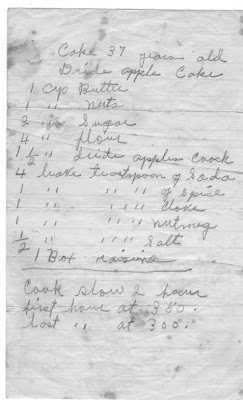 Cake 37 years old
Dride apple Cake
1 Cup Butter
1 " nuts
2 " Sugar
4 " flour
1 1/2 " drite apples Coock
4 teaspoon of Soda
1 " " " of Spice
1 " " " Cloke
1 " " " nutmug
1/2 " " " Salt
1 Box raisins
Cook slow 2 hour
first hour at 350.
last " at 300.